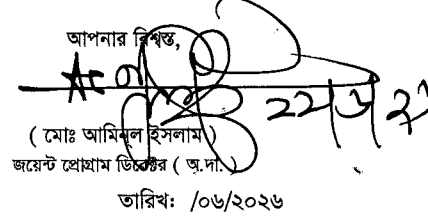 আপনার বিশ্বস্ত,
( মোঃ আমিনুল ইসলাম )
জয়েন্ট প্রোগ্রাম ডিরেক্টর ( অ.দা. )
তারিখঃ /০৬/২০২৬